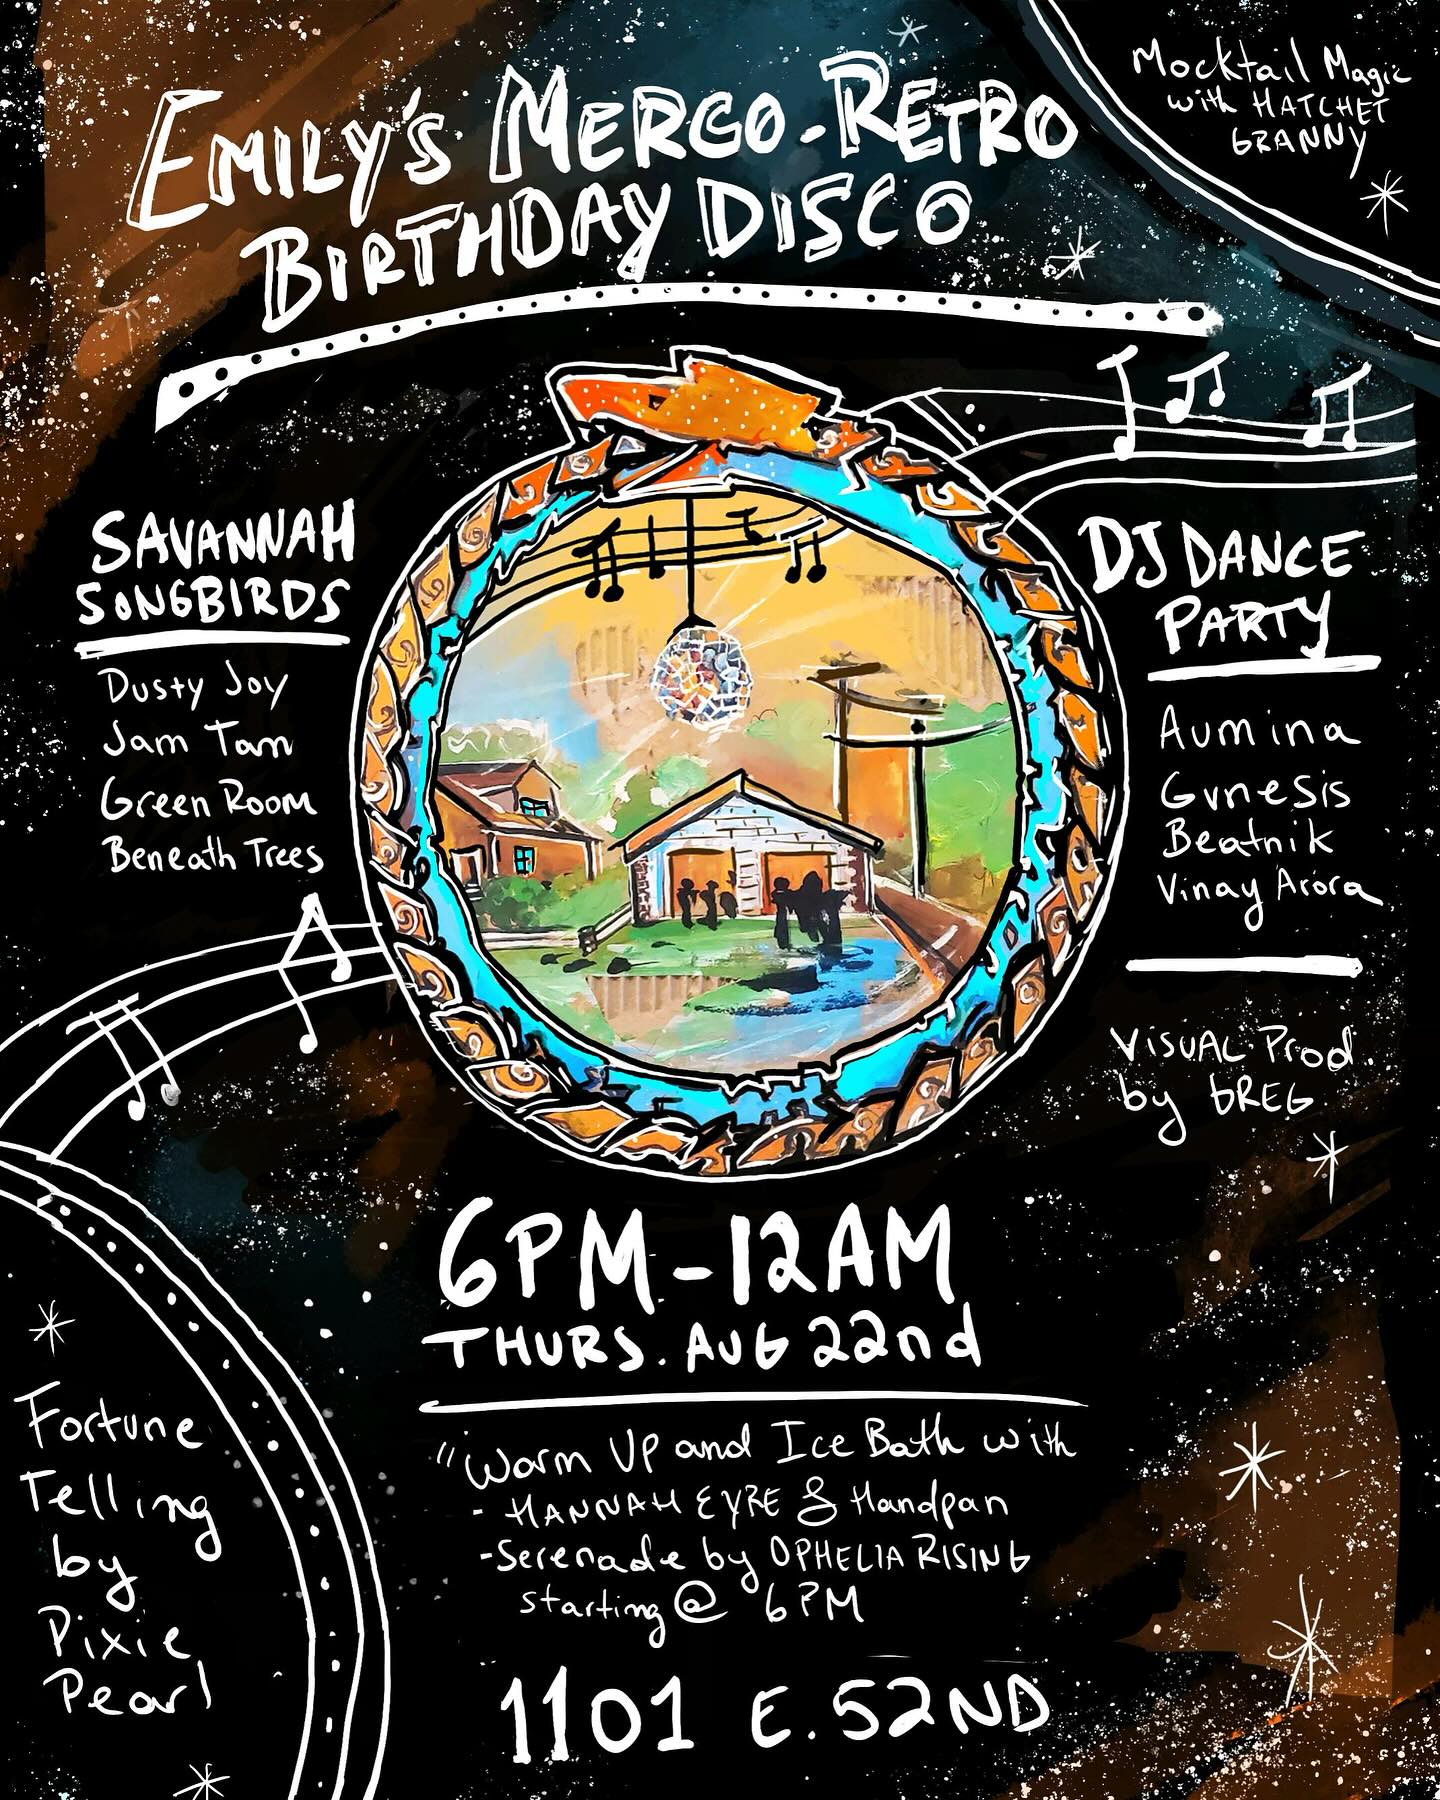 EMILY'S MERCO-RETRO
BIRTHDAY DISCO
Mocktail Magic
with HATCHET
GRANNY
SAVANNAH
SONGBIRDS
Dusty Joy
Jam Tan
Green Room
Beneath Trees
DJ DANCE
PARTY
Aumina
Gvnesis
Beatnik
Vinay Arora
VISUAL Prod.
by GREG
6PM-12AM
THURS. AUG 22nd
"Warm UP and Ice Bath with
- HANNAH EYRE & Handpan
- Serenade by OPHELIA RISING
starting @ 6PM
Fortune
Telling
by
Pixie
Pearl
1101 E. 52ND